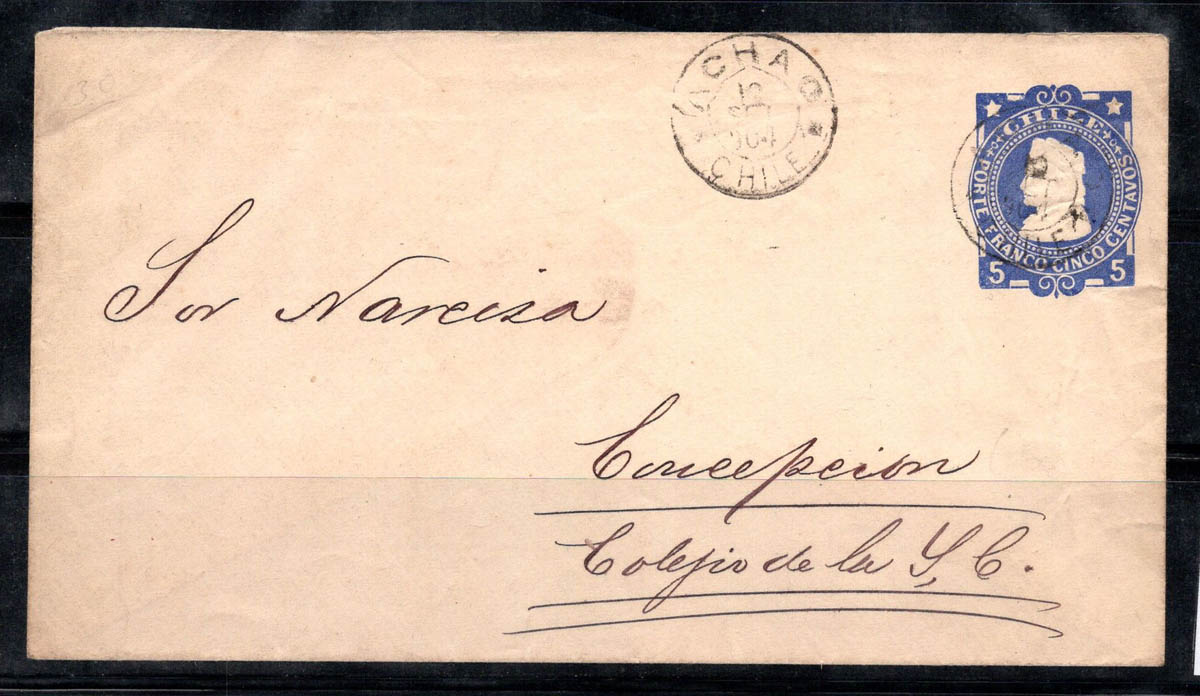 ACHAO
12
904
CHILE
CHILE
PORTE FRANCO CINCO CENTAVOS
5 5
Sor Narcisa
Concepcion
Colejio de la S, C.